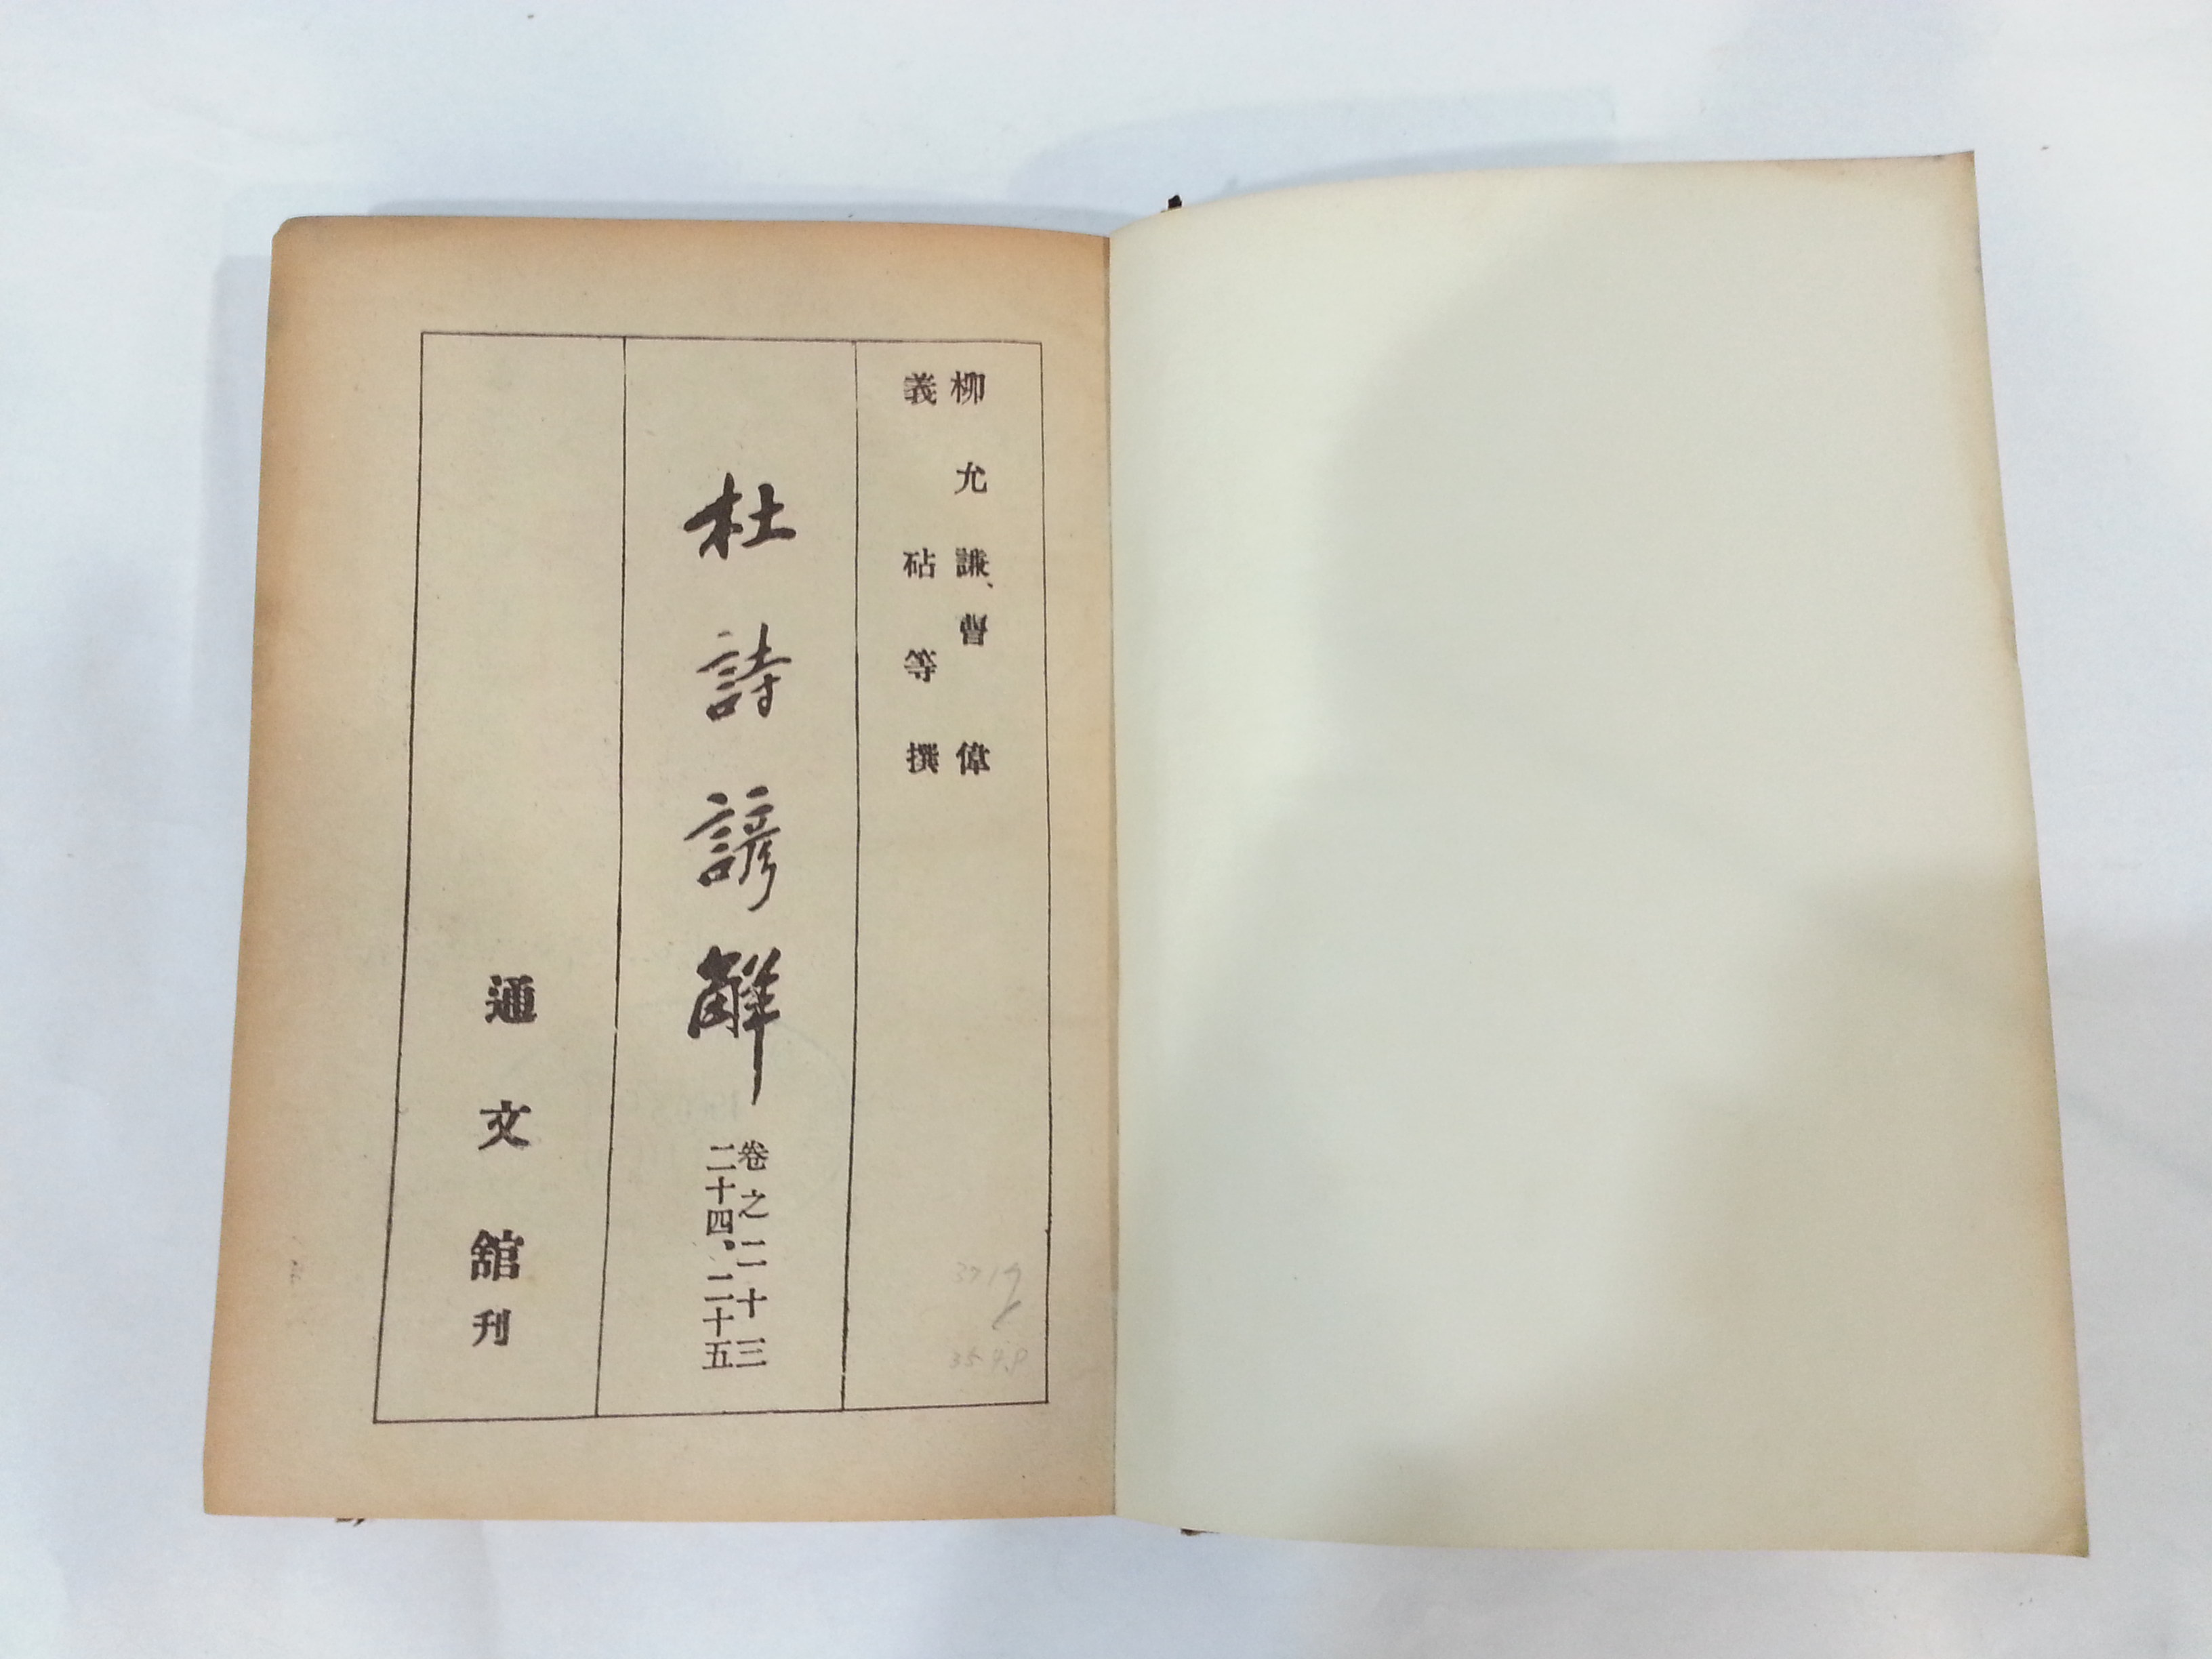 柳允謙、曹偉
義砧等撰
杜詩諺解
卷之二十三
二十四、二十五
通文舘刊